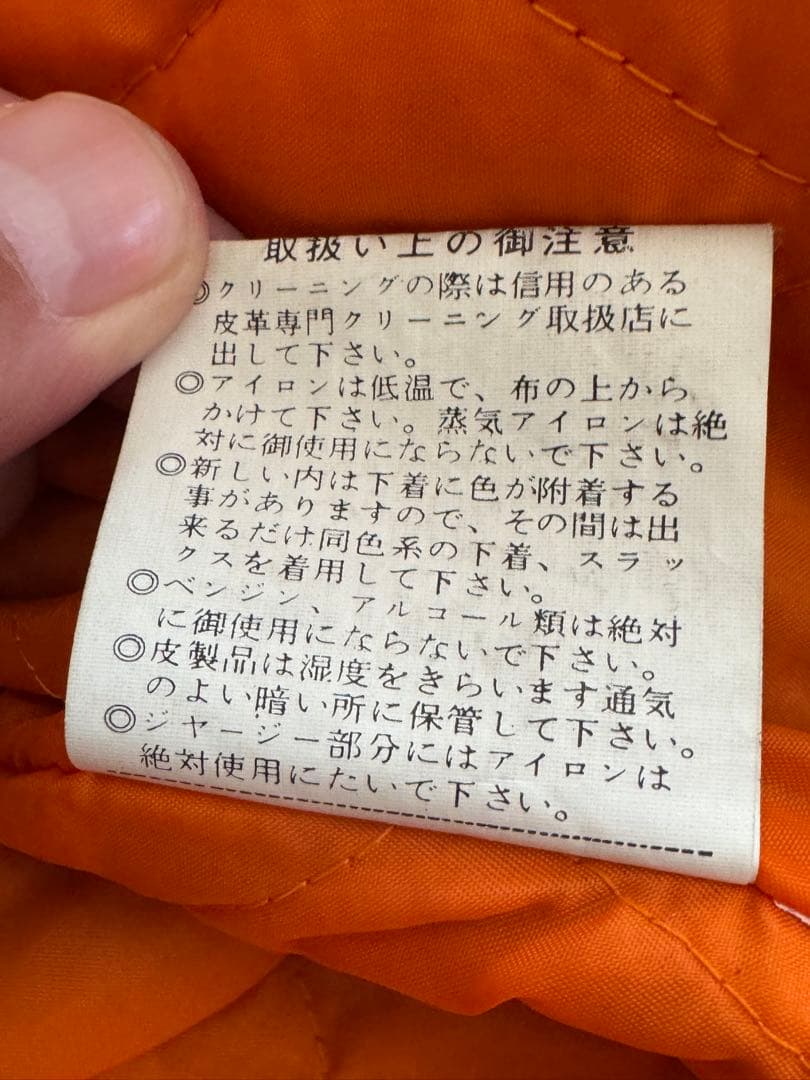 取扱い上の御注意
◎クリーニングの際は信用のある
皮革専門クリーニング取扱店に
出して下さい。
◎アイロンは低温で、布の上から
かけて下さい。蒸気アイロンは絶
対に御使用にならないで下さい。
◎新しい内は下着に色が附着する
事がありますので、その間は出
来るだけ同色系の下着、スラッ
クスを着用して下さい。
◎ベンジン、アルコール類は絶対
に御使用にならないで下さい。
◎皮製品は湿度をきらいます通気
のよい暗い所に保管して下さい。
◎ジャージー部分にはアイロンは
絶対使用にたいで下さい。